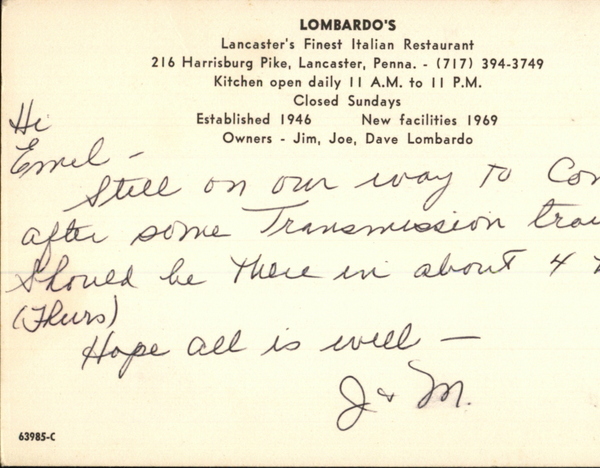 LOMBARDO'S
Lancaster's Finest Italian Restaurant
216 Harrisburg Pike, Lancaster, Penna. - (717) 394-3749
Kitchen open daily 11 A.M. to 11 P.M.
Closed Sundays
Established 1946 New facilities 1969
Owners - Jim, Joe, Dave Lombardo
Hi
Emil -
Still on our way to
after some Transmission
Should be there in about 4
(Thurs)
Hope all is well -
J & M.
63985-C